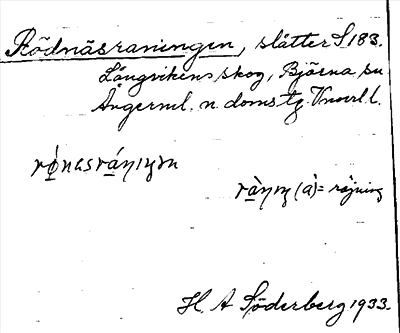 Rödnäsraningen, slåtter S 183.
Långvikens skog, Björna sn
Ångerml. n. doms. tg. Vnorrl. l.
rǿnasrányɩŋɜn
rànɩŋ (à) = röjning
H. A Söderberg 1933.